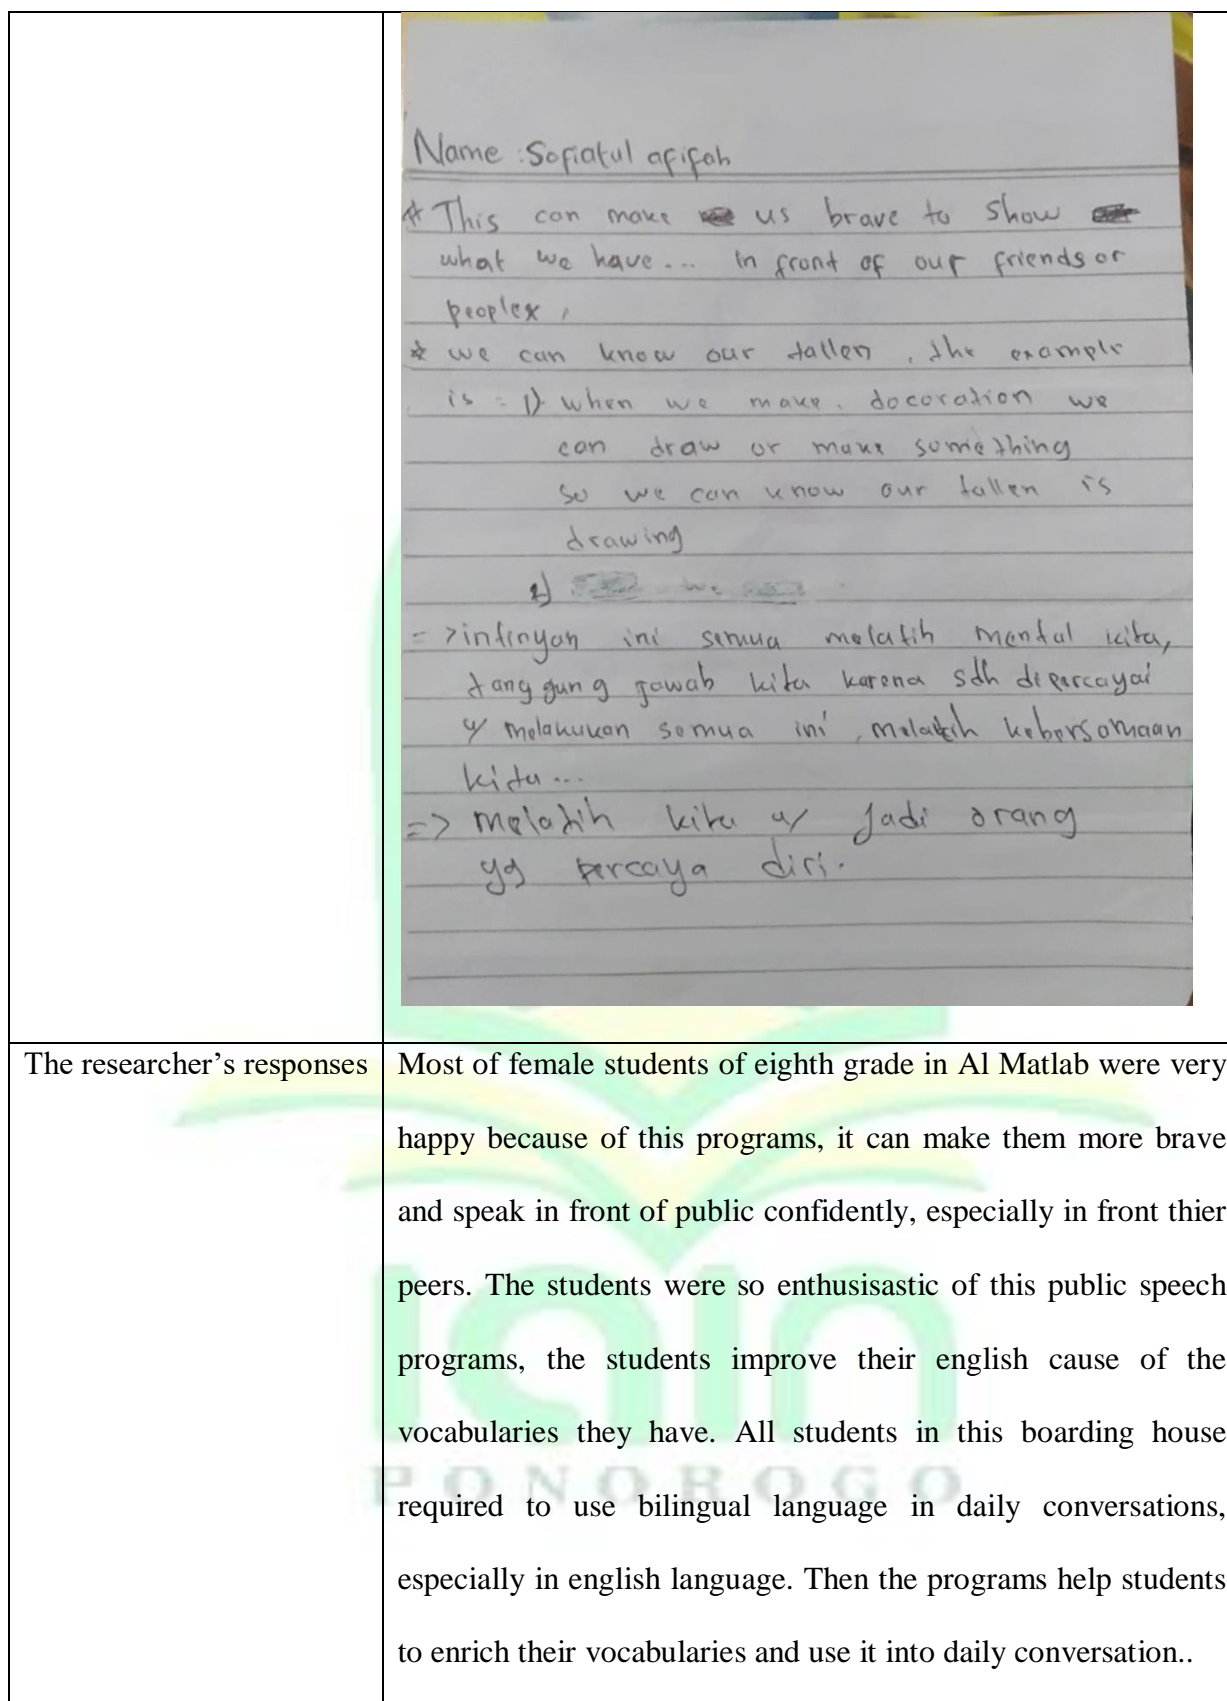 Name : Sofiatul afifah
* This can make us brave to show
what we have... in front of our friends or
people
* we can know our tallen, the example
is = 1) when we make. docoration we
can draw or make something
so we can know our tallen is
drawing
2) we
=> intinyah ini semua melatih mental kita,
tanggung jawab kita karena sdh dipercayai
u/ melakukan semua ini, melatih kebersamaan
kita...
=> melatih kita u/ jadi orang
yg percaya diri.
The researcher’s responses
Most of female students of eighth grade in Al Matlab were very
happy because of this programs, it can make them more brave
and speak in front of public confidently, especially in front thier
peers. The students were so enthusisastic of this public speech
programs, the students improve their english cause of the
vocabularies they have. All students in this boarding house
required to use bilingual language in daily conversations,
especially in english language. Then the programs help students
to enrich their vocabularies and use it into daily conversation..
iain
PONOROGO